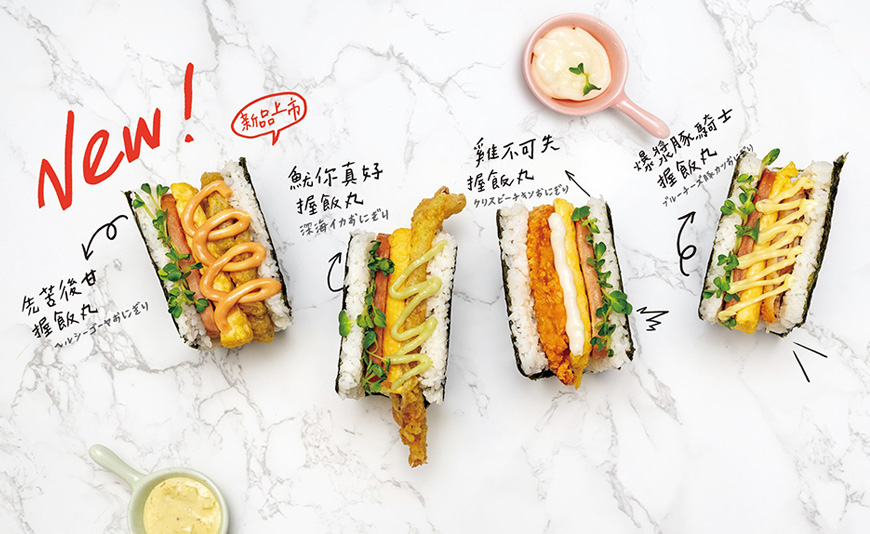 New!
新品上市
先苦後甘
握飯丸
ヘルシーゴーヤおにぎり
魷你真好
握飯丸
深海イカおにぎり
雞不可失
握飯丸
クリスピーチキンおにぎり
爆漿豚騎士
握飯丸
ブルーチーズ豚カツおにぎり